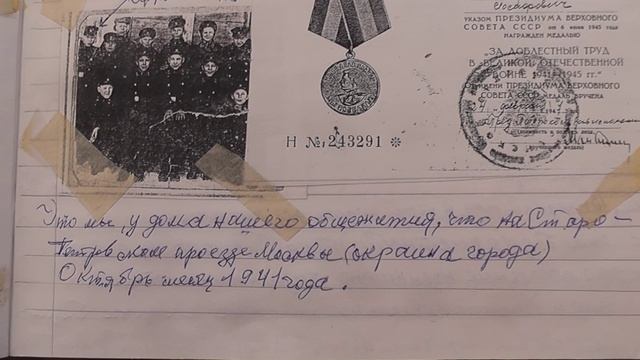 Иосифович
УКАЗОМ ПРЕЗИДИУМА ВЕРХОВНОГО
СОВЕТА СССР от 6 июня 1945 года
НАГРАЖДЕН МЕДАЛЬЮ
„ЗА ДОБЛЕСТНЫЙ ТРУД
В ВЕЛИКОЙ ОТЕЧЕСТВЕННОЙ
ВОЙНЕ 1941—1945 гг."
ПРЕЗИДИУМА ВЕРХОВНОГО
СОВЕТА СССР МЕДАЛЬ ВРУЧЕНА
Н № 243291 *
Это мы, у дома нашего общежития, что на Старо-
Петровском проезде Москвы (окраина города)
Октябрь месяц 1941 года.